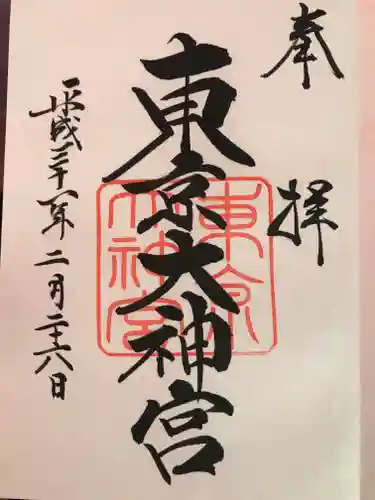 奉拝
東京大神宮
東京大神宮
平成三十一年二月二十八日